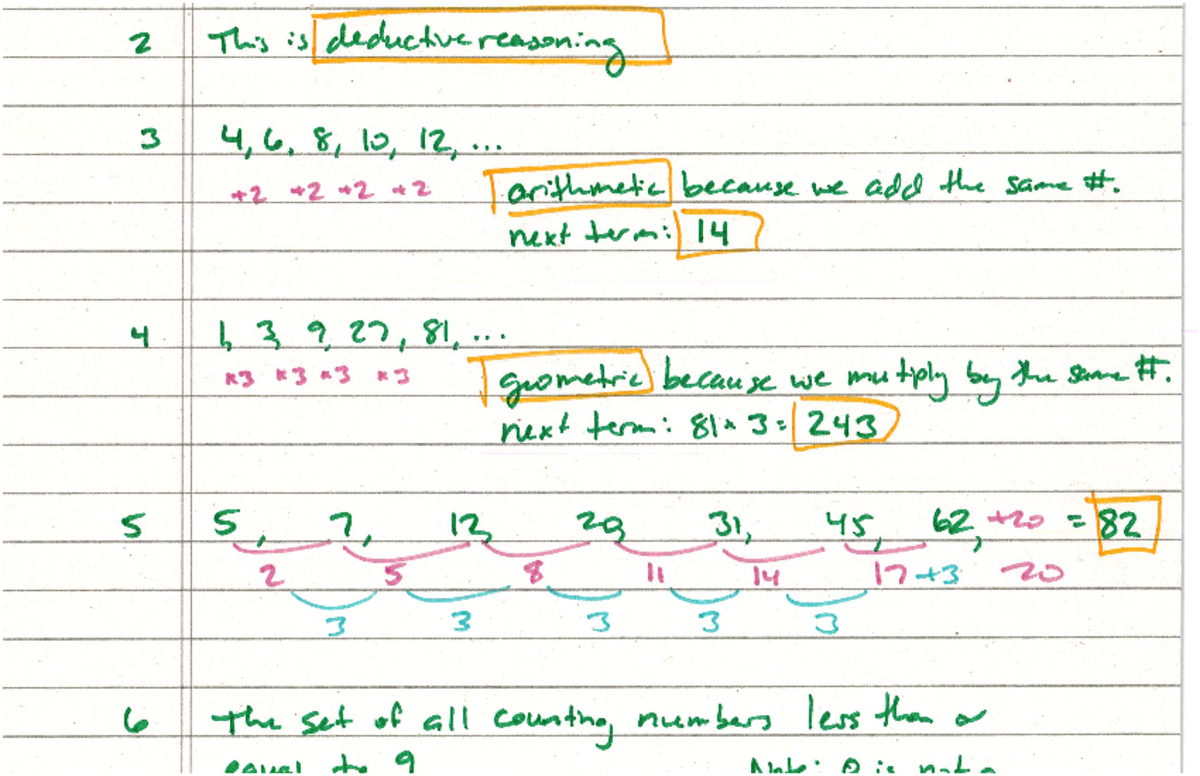 2 This is deductive reasoning
3 4, 6, 8, 10, 12, ...
+2 +2 +2 +2 arithmetic because we add the same #.
next term: 14
4 1, 3, 9, 27, 81, ...
×3 ×3 ×3 ×3 geometric because we multiply by the same #.
next term: 81 × 3 = 243
5 5, 7, 12, 20, 31, 45, 62, +20 = 82
2 5 8 11 14 17 +3 20
3 3 3 3 3
6 The set of all counting numbers less than or
equal to 9 Note: 0 is not a